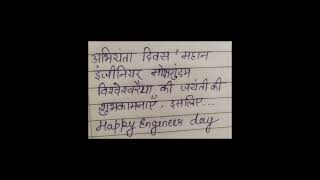 अभियंता दिवस 'महान
इंजीनियर मोक्षगुंडम
विश्वेश्वरैया की जयंती की
शुभकामनाएँ, इसलिए...
Happy Engineer day